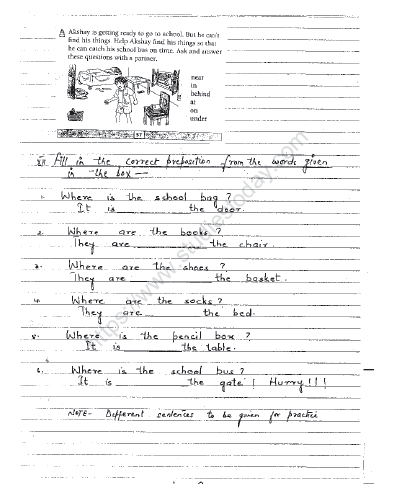 A Akshay is getting ready to go to school. But he can't
find his things. Help Akshay find his things so that
he can catch his school bus on time. Ask and answer
these questions with a partner.
near
in
behind
at
on
under
57
XII. Fill in the correct preposition from the words given
in the box —
1. Where is the school bag ?
It is __________ the door.
2. Where are the books ?
They are __________ the chair.
3. Where are the shoes ?
They are __________ the basket.
4. Where are the socks ?
They are __________ the bed.
5. Where is the pencil box ?
It is __________ the table.
6. Where is the school bus ?
It is __________ the gate ! Hurry !!!
NOTE- Different sentences to be given for practice
https://www.studiestoday.com